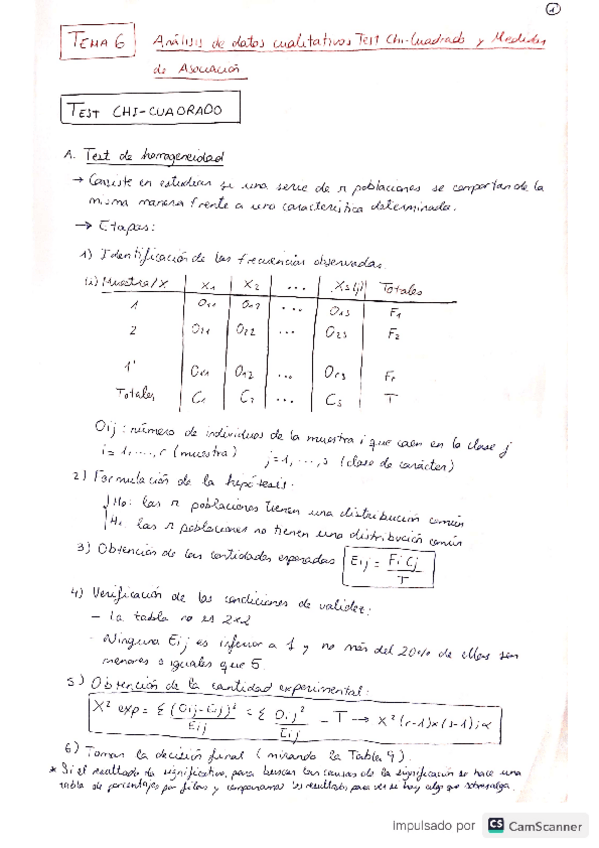 1
TEMA 6 Análisis de datos cualitativos Test Chi-Cuadrado y Medidas
de Asociación
TEST CHI-CUADRADO
A. Test de homogeneidad
→ Consiste en estudiar si una serie de r poblaciones se comportan de la
misma manera frente a una característica determinada.
→ Etapas:
1) Identificación de las frecuencias observadas.
(i) Muestra/X X1 X2 ... Xs (j) Totales
1 O11 O12 ... O1s F1
2 O21 O22 ... O2s F2
r Or1 Or2 ... Ors Fr
Totales C1 C2 ... Cs T
Oij: número de individuos de la muestra i que caen en la clase j
i = 1, ..., r (muestra) j = 1, ..., s (clase de carácter)
2) Formulación de la hipótesis:
H0: las r poblaciones tienen una distribución común
H1 las r poblaciones no tienen una distribución común
3) Obtención de las cantidades esperadas Eij = Fi Cj / T
4) Verificación de las condiciones de validez:
- La tabla no es 2x2
- Ninguna Eij es inferior a 1 y no más del 20% de ellas son
menores o iguales que 5.
5) Obtención de la cantidad experimental:
X² exp = Σ (Oij-Eij)² / Eij = Σ Oij² / Eij - T → X² (r-1)x(s-1); α
6) Tomar la decisión final (mirando la Tabla 9).
* Si el resultado da significativo, para buscar las causas de la significación se hace una
tabla de porcentajes por filas y comparamos los resultados para ver si hay algo que sobresalga.
Impulsado por CS CamScanner